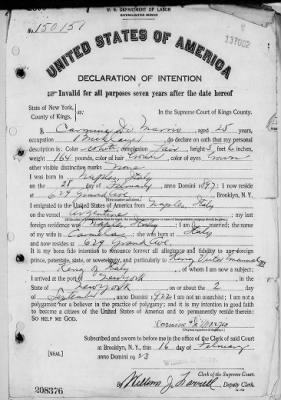 U. S. DEPARTMENT OF LABOR
NATURALIZATION SERVICE
No. 150151
137002
UNITED STATES OF AMERICA
DECLARATION OF INTENTION
Invalid for all purposes seven years after the date hereof
State of New York,
County of Kings, ss:
In the Supreme Court of Kings County.
I, Carmine De Marco, aged 28 years,
occupation, do declare on oath that my personal
description is: Color white, complexion Fair, height 5 feet 6 inches,
weight 164 pounds, color of hair, color of eyes
other visible distinctive marks None
I was born in Naples, Italy
on the 28 day of, anno Domini 1; I now reside
at 629 Grand Ave, Brooklyn, N. Y.
I emigrated to the United States of America from Naples, Italy
on the vessel Argentina; my last
foreign residence was Naples, Italy; I am married; the name
of my wife is; she was born at Italy
and now resides at 629 Grand Ave.
It is my bona fide intention to renounce forever all allegiance and fidelity to any foreign
prince, potentate, state, or sovereignty, and particularly to Victor Emmanuel III
King of Italy, of whom I am now a subject;
I arrived at the port of New York, in the
State of New York, on or about the 2 day
of September, anno Domini 1922; I am not an anarchist; I am not a
polygamist nor a believer in the practice of polygamy; and it is my intention in good faith
to become a citizen of the United States of America and to permanently reside therein:
SO HELP ME GOD.
Carmine De Marco
Subscribed and sworn to before me in the office of the Clerk of said Court
at Brooklyn, N. Y., this 16 day of February
[SEAL] anno Domini 1923
Clerk of the Supreme Court.
By William J., Deputy Clerk.
208376